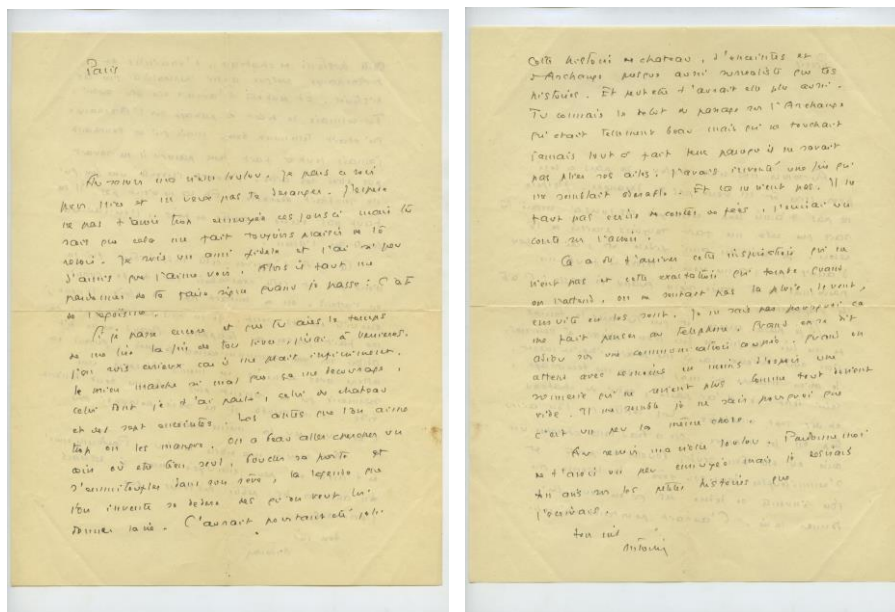 Paris
Au revoir ma vieille Loulou. Je pars ce soir
pour et ne veux pas te déranger. J'espère
ne pas t'avoir trop ennuyée ces jours ci mais tu
sais que cela me fait toujours plaisir de te
revoir. Je suis un ami fidèle et j'ai si peu
d'amis que j'aime voir. Alors il faut me
pardonner de te faire signe quand je passe : c'est
de l'égoïsme.
Si je passe encore et que tu aies le temps
de me lire la fin de ton livre, j'irai à Verrières.
J'en suis curieux car il me plait infiniment.
Le mien marche si mal que ça me décourage,
celui dont je t'ai parlé, celui du chateau
et des sept enceintes. Les que l'on aime
trop on les manque. On a beau aller chercher un
coin où être bien seul, boucler sa porte et
s'emmitoufler dans son rêve, la légende que
l'on invente se défend dès qu'on veut lui
donner la vie. C'aurait pourtant été joli
cette histoire de chateau, d'enceintes et
d'Archange presque aussi surréaliste que tes
histoires. Et peut etre t'aurait elle plu aussi.
Tu connais le début du passage sur l'Archange
qui était tellement beau mais qui ne touchait
jamais tout à fait terre parce qu'il ne savait
pas plier ses ailes. J'avais inventé une fin qui
me semblait adorable. Et ça ne vient pas. Il ne
faut pas écrire de contes de fées. J'écrirai un
conte sur l'avion.
Ça a dû t'arriver cette inspiration qui ne
vient pas et cette exaltation qui tombe quand
on l'attend. On ne mérite pas la pluie, le vent,
ensuite on les sent. Je ne sais pas pourquoi ça
me fait penser au téléphone. Quand on se dit
adieu sur une communication coupée. Quand on
attend avec de moins en moins d'espoir une
sonnerie qui ne revient plus. Comme tout devient
vide. Il me semble je ne sais pourquoi que
c'est un peu la même chose.
Au revoir ma vieille Loulou. Pardonne moi
de t'avoir un peu ennuyée mais je voulais
ton avis sur les petites histoires que
j'écrivais.
ton vieil
Antoine